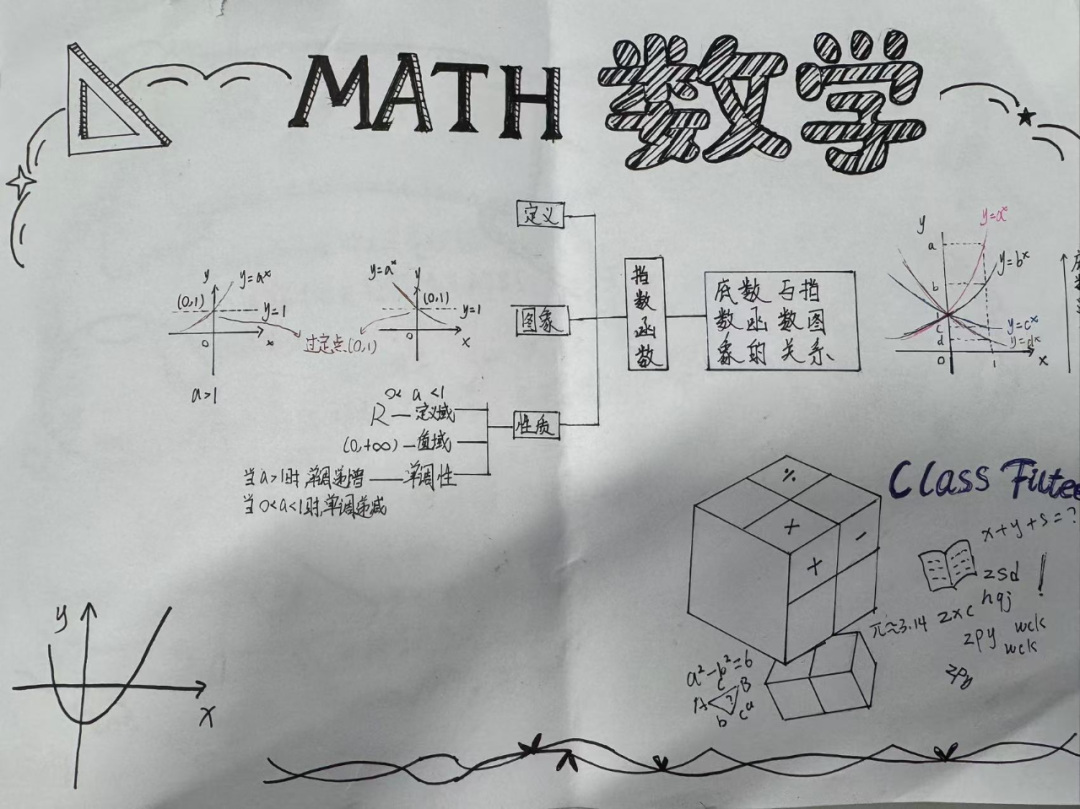 MATH 数学
定义
y
y=aˣ
(0,1)
y=1
0
x
a>1
过定点(0,1)
y=aˣ
y
(0,1)
y=1
0
x
0<a<1
图象
指数函数
底数与指
数函数图
象的关系
y
y=aˣ
a
y=bˣ
b
c
y=cˣ
d
y=dˣ
0
1
x
性质
R — 定义域
(0,+∞) — 值域
当a>1时,单调递增 — 单调性
当0<a<1时,单调递减
%
+
+
-
Class
x+y+s=?
zsd
!
hqj
zxc
π≈3.14
zpy
wck
wck
zpy
a²-b²=6
A
c
B
b
c
a
y
x